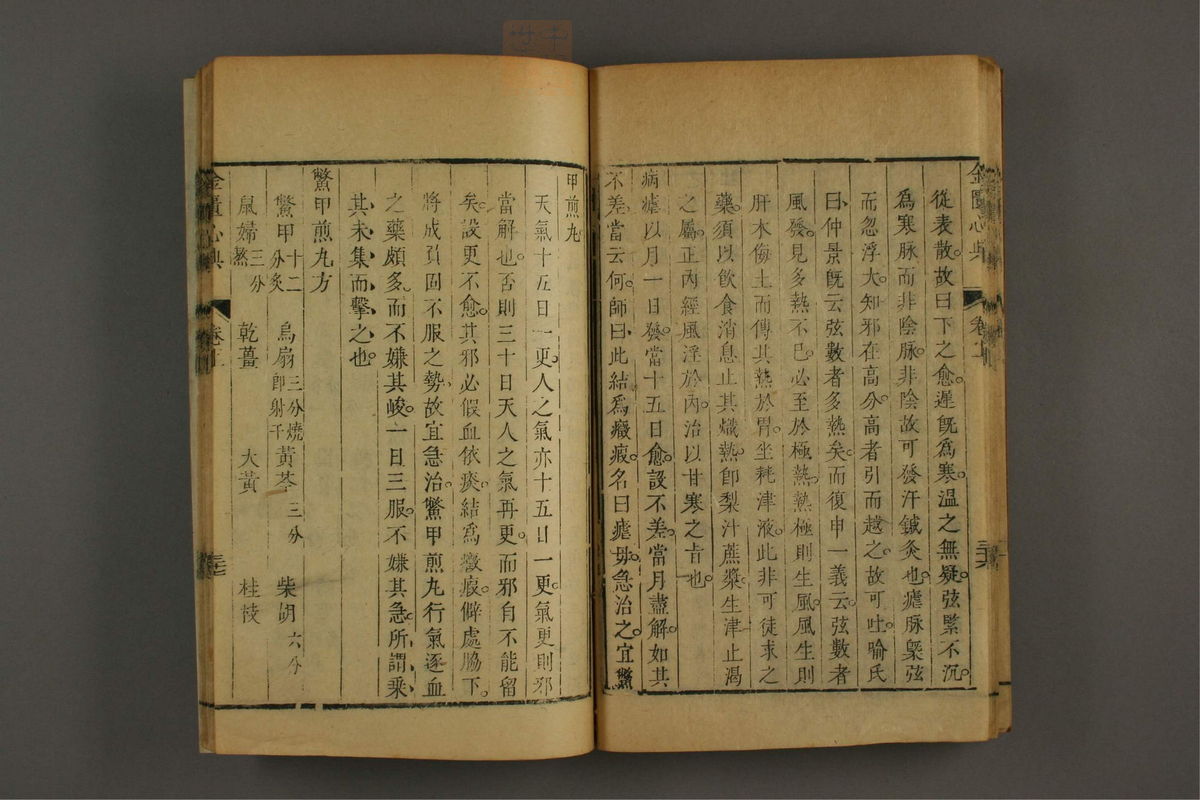 金匱心典
從表散故曰下之愈遲旣爲寒温之無疑弦緊不沉
爲寒脉而非陰脉非陰故可發汗鍼灸也瘧脉槩弦
而忽浮大知邪在高分高者引而越之故可吐喻氏
曰仲景旣云弦數者多熱矣而復申一義云弦數者
風發見多熱不已必至於極熱熱極則生風風生則
肝木侮土而傳其熱於胃坐耗津液此非可徒求之
藥須以飲食消息止其熾熱卽梨汁蔗漿生津止渴
之屬正內經風淫於內治以甘寒之旨也
病瘧以月一日發當十五日愈設不差當月盡解如其
不差當云何師曰此結爲癥瘕名曰瘧毋急治之宜鱉
甲煎丸
天氣十五日一更人之氣亦十五日一更氣更則邪
當解也否則三十日天人之氣再更而邪自不能留
矣設更不愈其邪必假血依痰結爲癥瘕僻處脇下
將成負固不服之勢故宜急治鱉甲煎丸行氣逐血
之藥頗多而不嫌其峻一日三服不嫌其急所謂乘
其未集而擊之也
鱉甲煎丸方
鱉甲十二分炙 烏扇三分燒卽射干 黃芩三分 柴胡六分
鼠婦三分熬 乾薑 大黃 桂枝
金匱心典 卷上